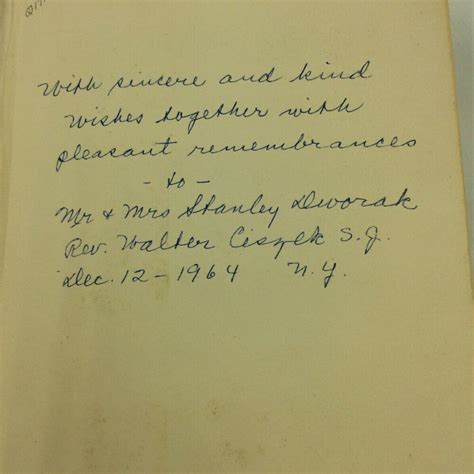 With sincere and kind
wishes together with
pleasant remembrances
- to -
Mr & Mrs Stanley Dworak
Rev. Walter Ciszek S.J.
Dec. 12 - 1964 N.Y.